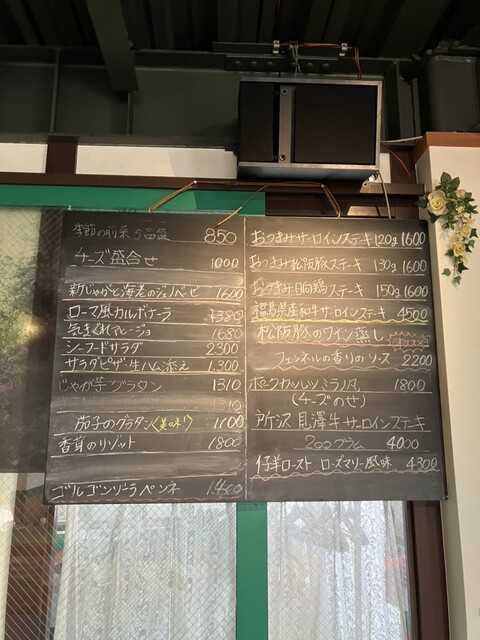 季節の前菜5品盛 850
チーズ盛合せ 1000
新じゃがと海老のジェノベーゼ 1600
ローマ風カルボナーラ 1380
気まぐれアヒージョ 1680
シーフードサラダ 2300
サラダピザ 生ハム添え 1.300
じゃが芋グラタン 1310
茄子のグラタン(美味!) 1100
香茸のリゾット 1800
ゴルゴンゾーラペンネ 1400
おつまみサーロインステーキ120g 1600
おつまみ松阪豚ステーキ 130g 1600
おつまみ日向鶏ステーキ 150g 1600
福島県産和牛サーロインステーキ 4500
松阪豚のワイン蒸し
フェンネルの香りのソース 2200
ポークカツレツミラノ風 1800
(チーズのせ)
所沢 見澤牛サーロインステーキ
200グラム 4000
仔羊ロースト ローズマリー風味 4300